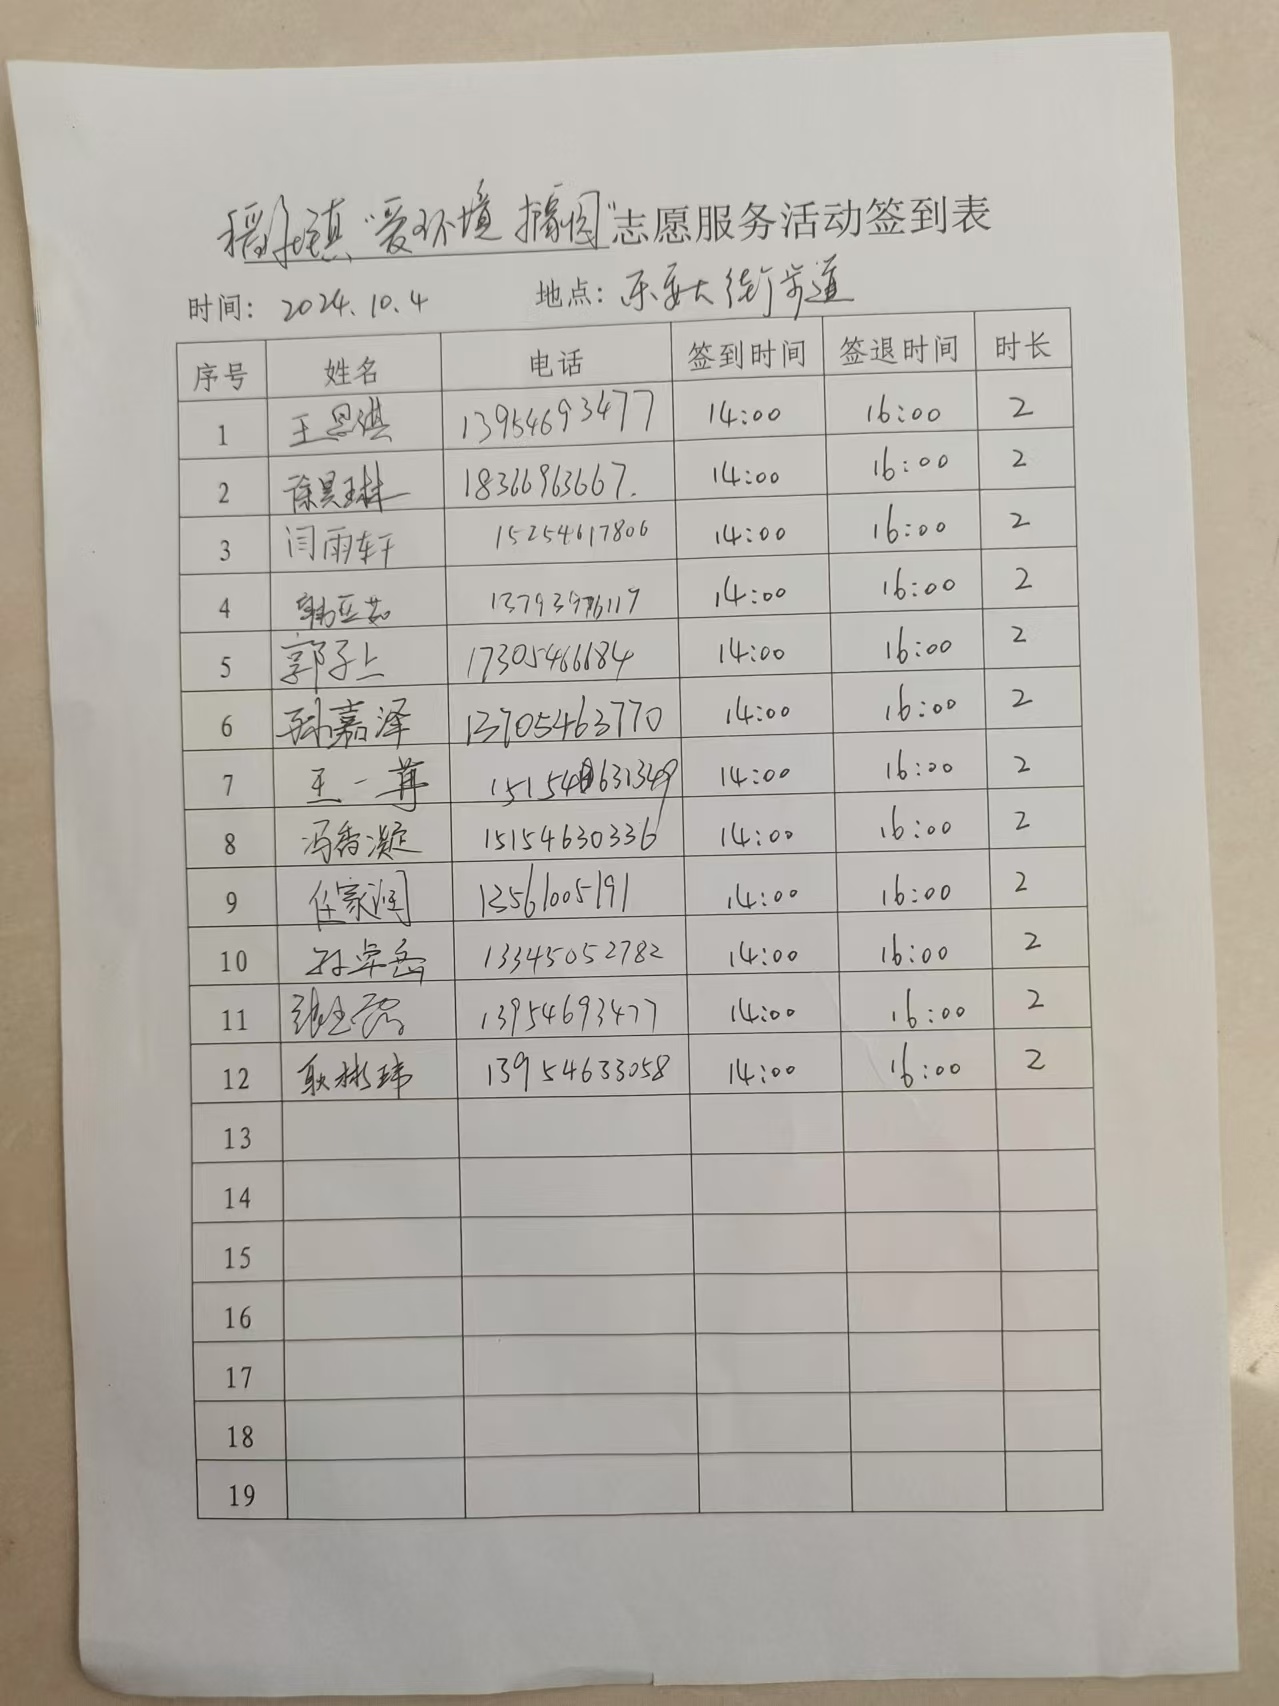 稻庄镇“爱环境 捡烟”志愿服务活动签到表
时间: 2024.10.4 地点: 乐安大街步道
序号 姓名 电话 签到时间 签退时间 时长
1 王恩祺 13954693477 14:00 16:00 2
2 徐昊琳 18366963667. 14:00 16:00 2
3 闫雨轩 15254617806 14:00 16:00 2
4 韩亚茹 14:00 16:00 2
5 郭子上 17305466684 14:00 16:00 2
6 孙嘉泽 13705463770 14:00 16:00 2
7 王一苒 14:00 16:00 2
8 冯香凝 15154630336 14:00 16:00 2
9 任家润 13561005191 14:00 16:00 2
10 孙卓岳 13345052782 14:00 16:00 2
11 13954693477 14:00 16:00 2
12 耿彬玮 13954633058 14:00 16:00 2
13
14
15
16
17
18
19